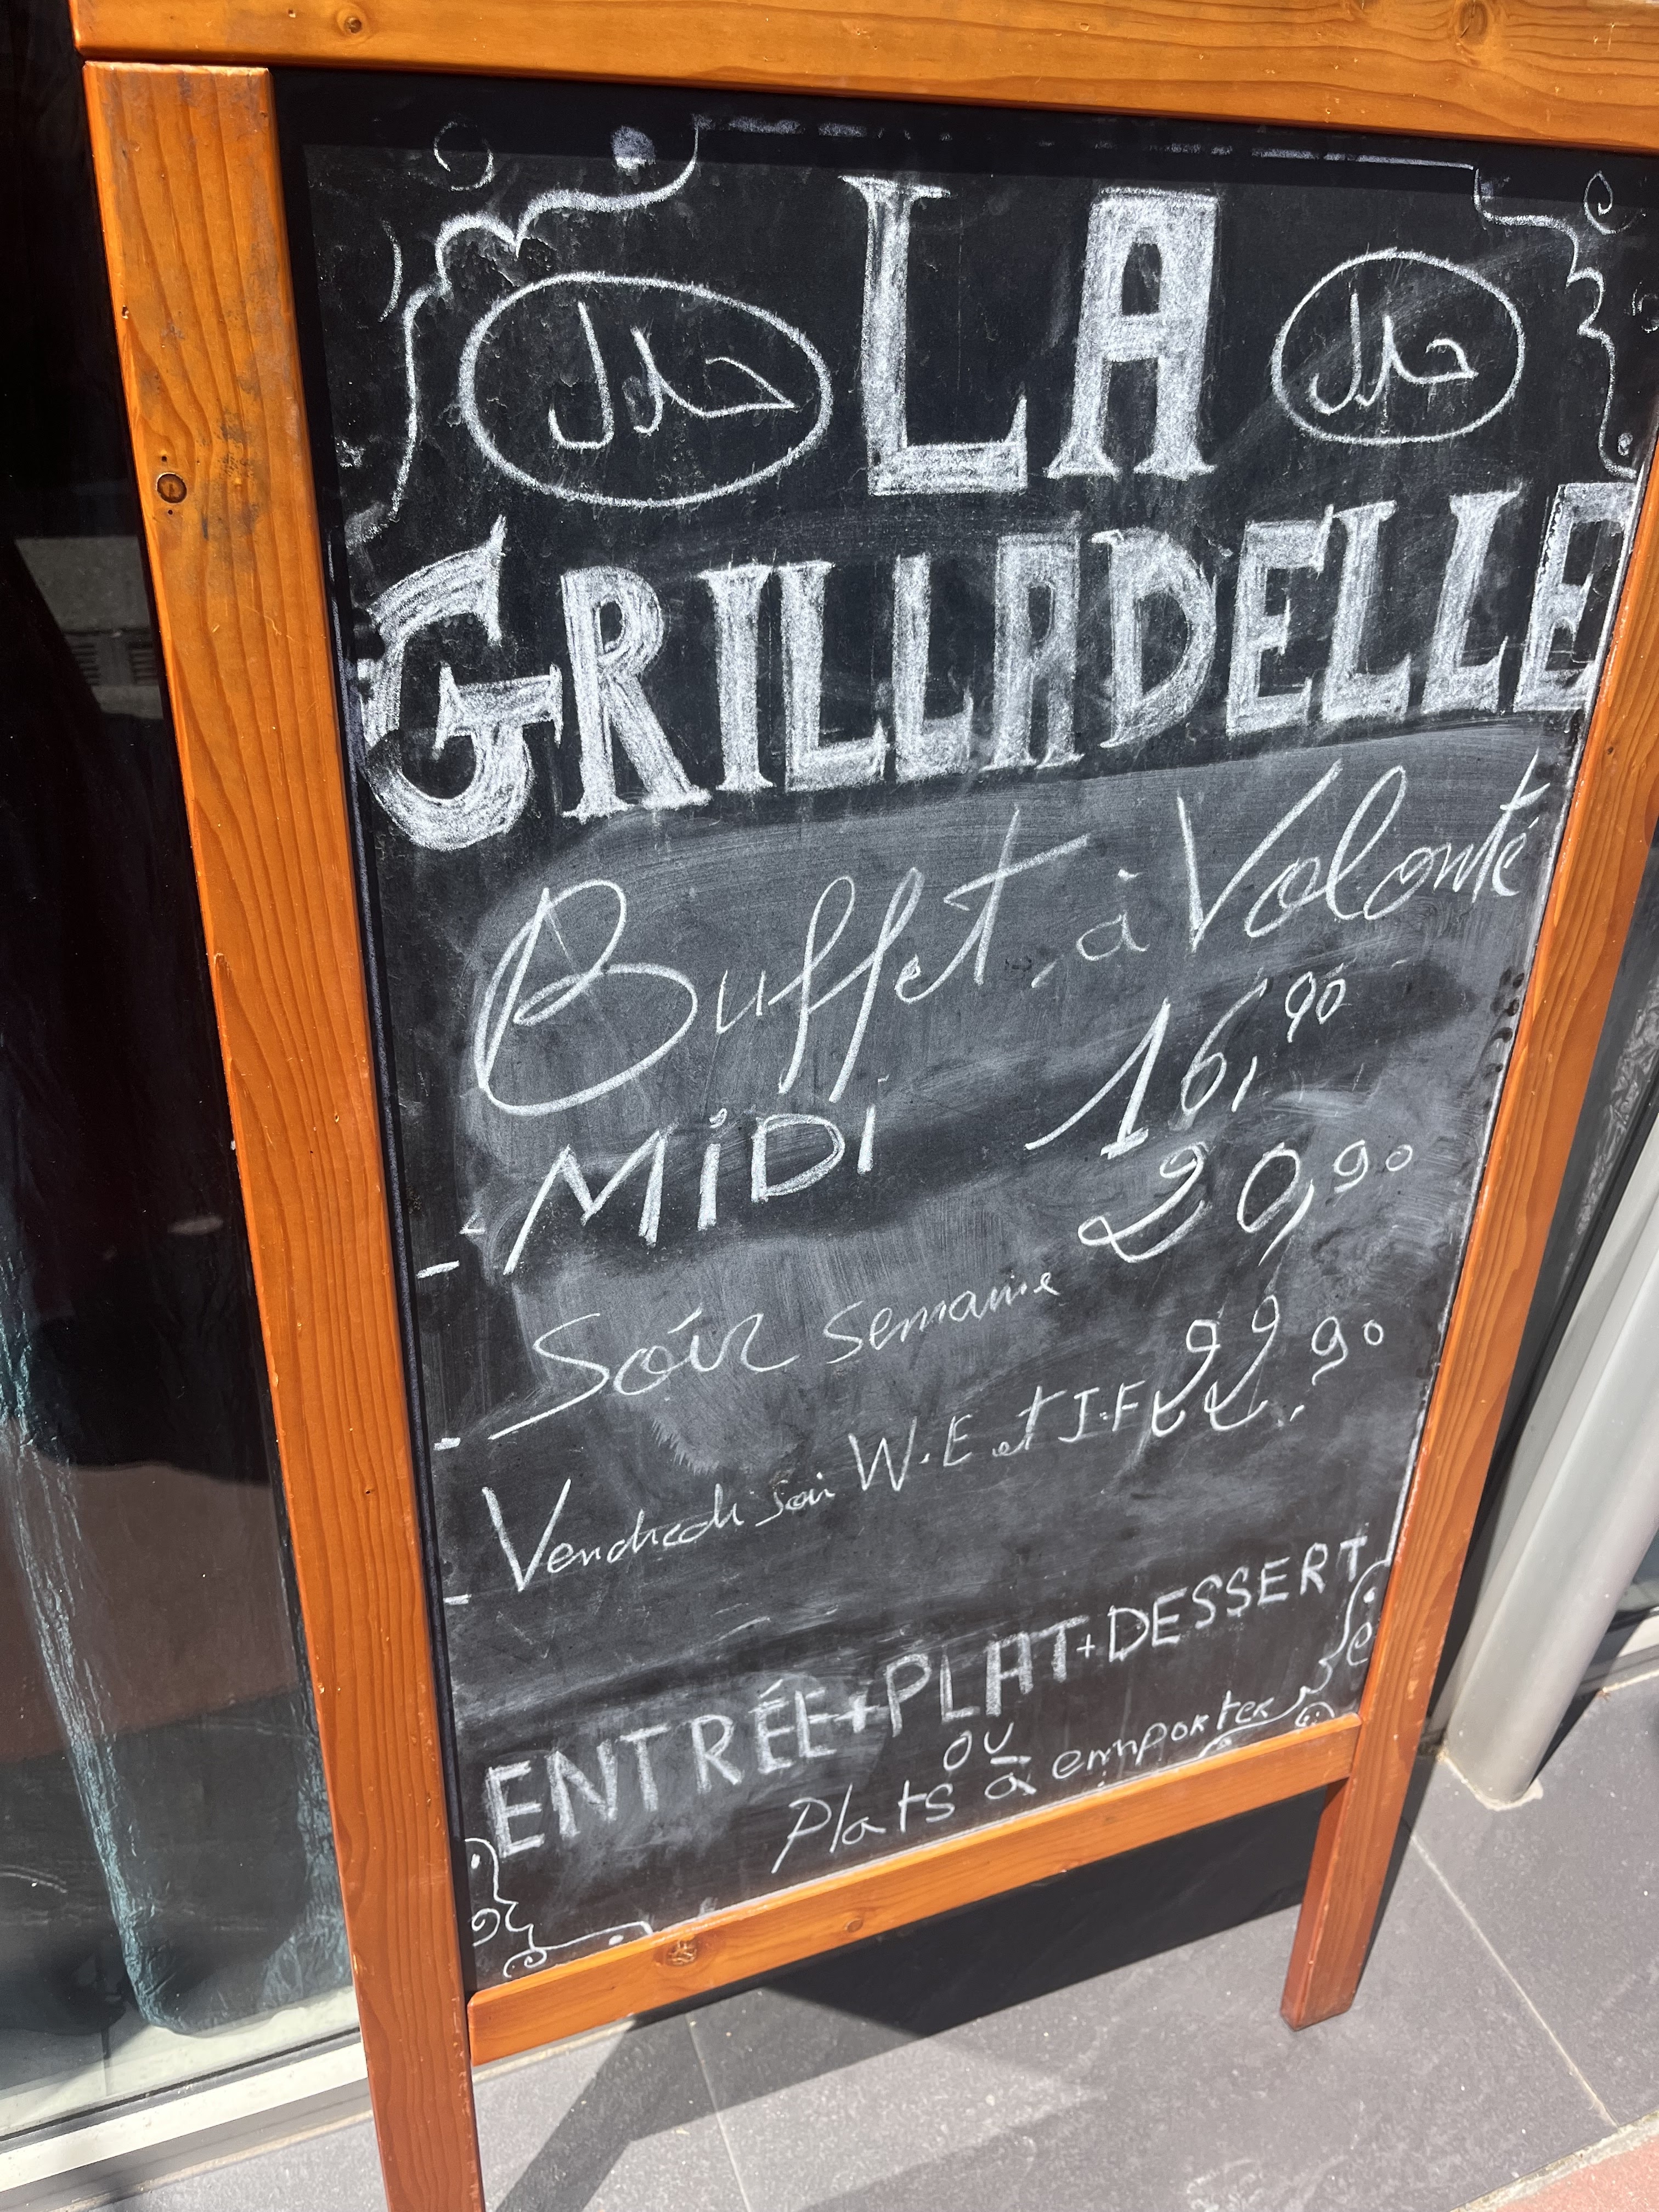 حلال LA حلال
GRILLADELLE
Buffet à Volonté
- MiDi 16,90
- Soir semaine 20,90
- Vendredi soir W.E et J.F 22,90
ENTRÉE+PLAT+DESSERT
OU
Plats à emporter